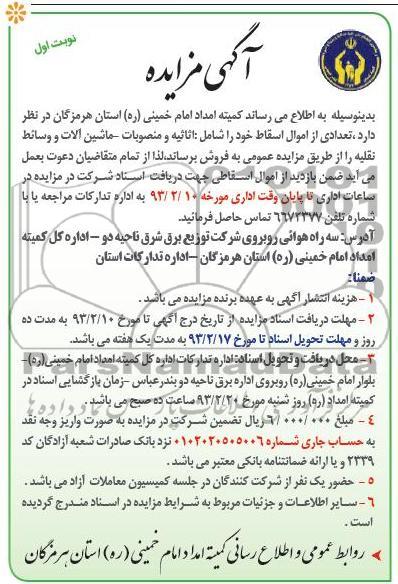 نوبت اول
آگهی مزایده
بدینوسیله به اطلاع می رساند کمیته امداد امام خمینی (ره) استان هرمزگان در نظر
دارد ،تعدادی از اموال اسقاط خود را شامل :اثاثیه و منصوبات -ماشین آلات و وسائط
نقلیه را از طریق مزایده عمومی به فروش برساند،لذا از تمام متقاضیان دعوت بعمل
می آید ضمن بازدید از اموال اسقاطی جهت دریافت اسناد شرکت در مزایده در
ساعات اداری تا پایان وقت اداری مورخه ۹۳/۲/۱۰ به اداره تدارکات مراجعه یا با
شماره تلفن ۶۶۷۲۳۷۷ تماس حاصل فرمائید.
آدرس: سه راه هوائی روبروی شرکت توزیع برق شرق ناحیه دو – اداره کل کمیته
امداد امام خمینی (ره) استان هرمزگان –اداره تدارکات استان
ضمنا:
۱ – هزینه انتشار آگهی به عهده برنده مزایده می باشد .
۲ – مهلت دریافت اسناد مزایده از تاریخ درج آگهی تا مورخ ۹۳/۲/۱۰ به مدت ده
روز و مهلت تحویل اسناد تا مورخ ۹۳/۲/۱۷ به مدت یک هفته می باشد.
۳ – محل دریافت و تحویل اسناد: اداره تدارکات اداره کل کمیته امداد امام خمینی(ره)-
بلوار امام خمینی(ره) روبروی اداره برق ناحیه دو بندرعباس –زمان بازگشایی اسناد در
کمیته امداد (ره) روز شنبه مورخ ۹۳/۲/۲۰ ساعت ده صبح می باشد .
۴ – مبلغ ۶/۰۰۰/۰۰۰ ریال تضمین شرکت در مزایده به صورت واریز وجه نقد
به حساب جاری شماره ۰۱۰۲۰۲۰۵۰۵۰۰۶ نزد بانک صادرات شعبه آزادگان کد
۲۳۳۹ و یا ارائه ضمانتنامه بانکی معتبر می باشد .
۵ – حضور یک نفر از شرکت کنندگان در جلسه کمیسیون معاملات آزاد می باشد .
۶ – سایر اطلاعات و جزئیات مربوط به شرایط مزایده در اسناد مندرج گردیده
است .
روابط عمومی و اطلاع رسانی کمیته امداد امام خمینی (ره) استان هرمزگان